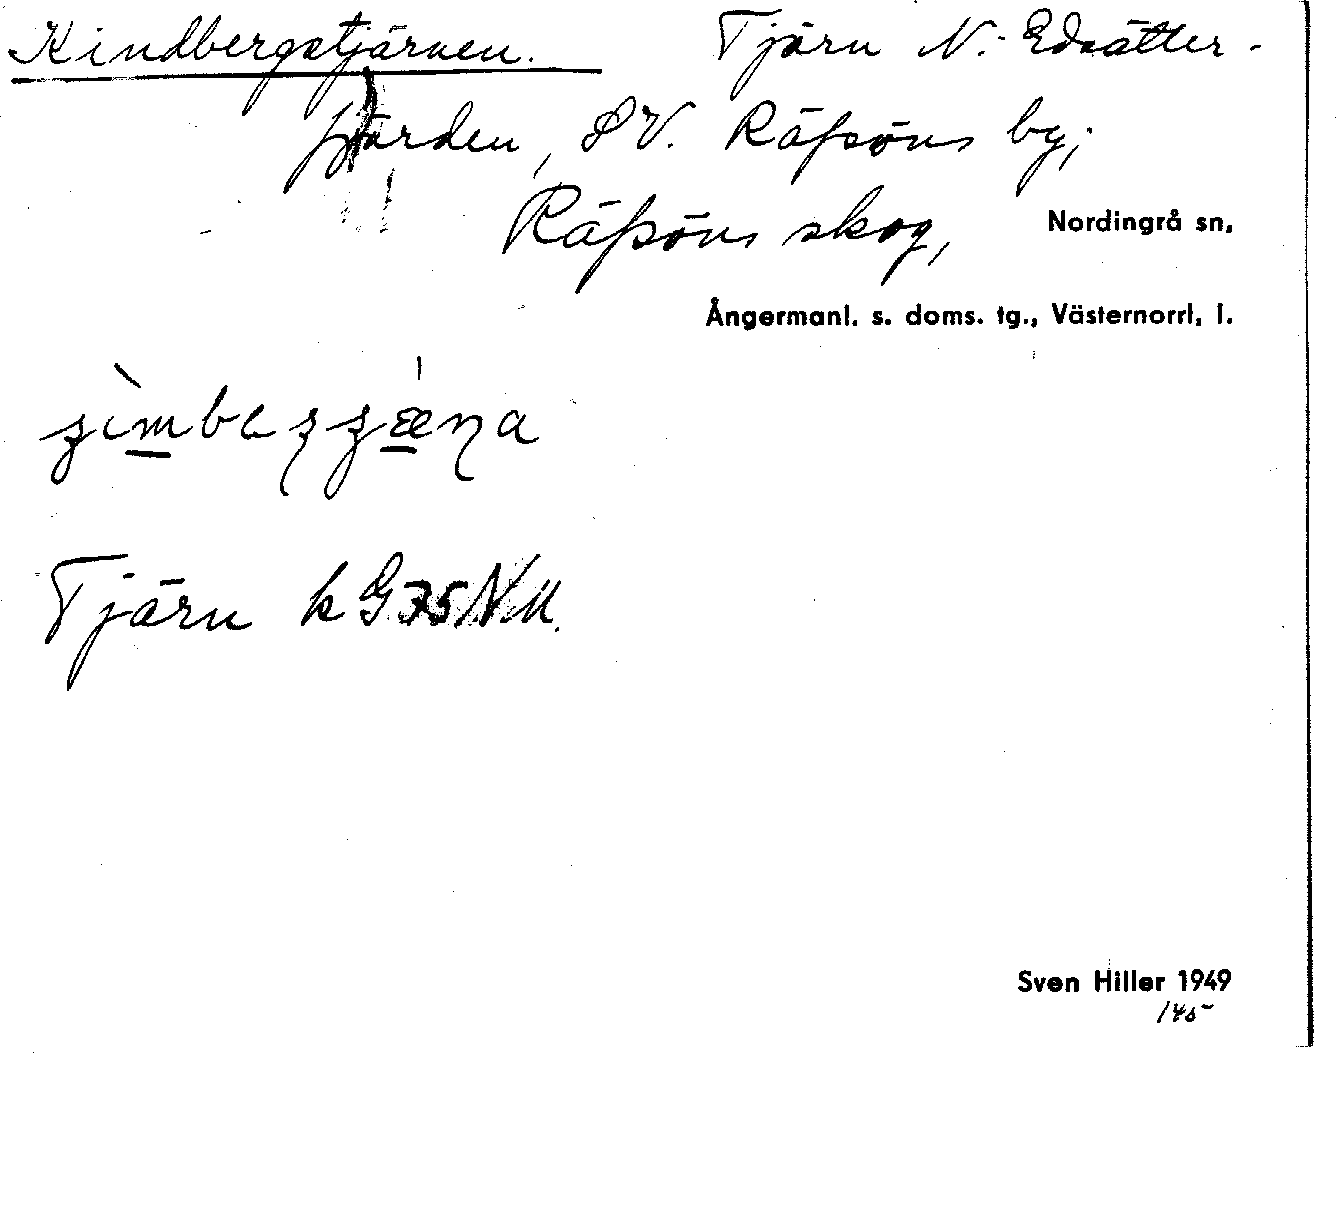 Kindbergstjärnen. Tjärn N. Edsätter-
fjärden, SV. Räfsöns by;
Räfsöns skog, Nordingrå sn,
Ångermanl. s. doms. tg., Västernorrl. l.
Tjärn k G 35 NM.
Sven Hiller 1949